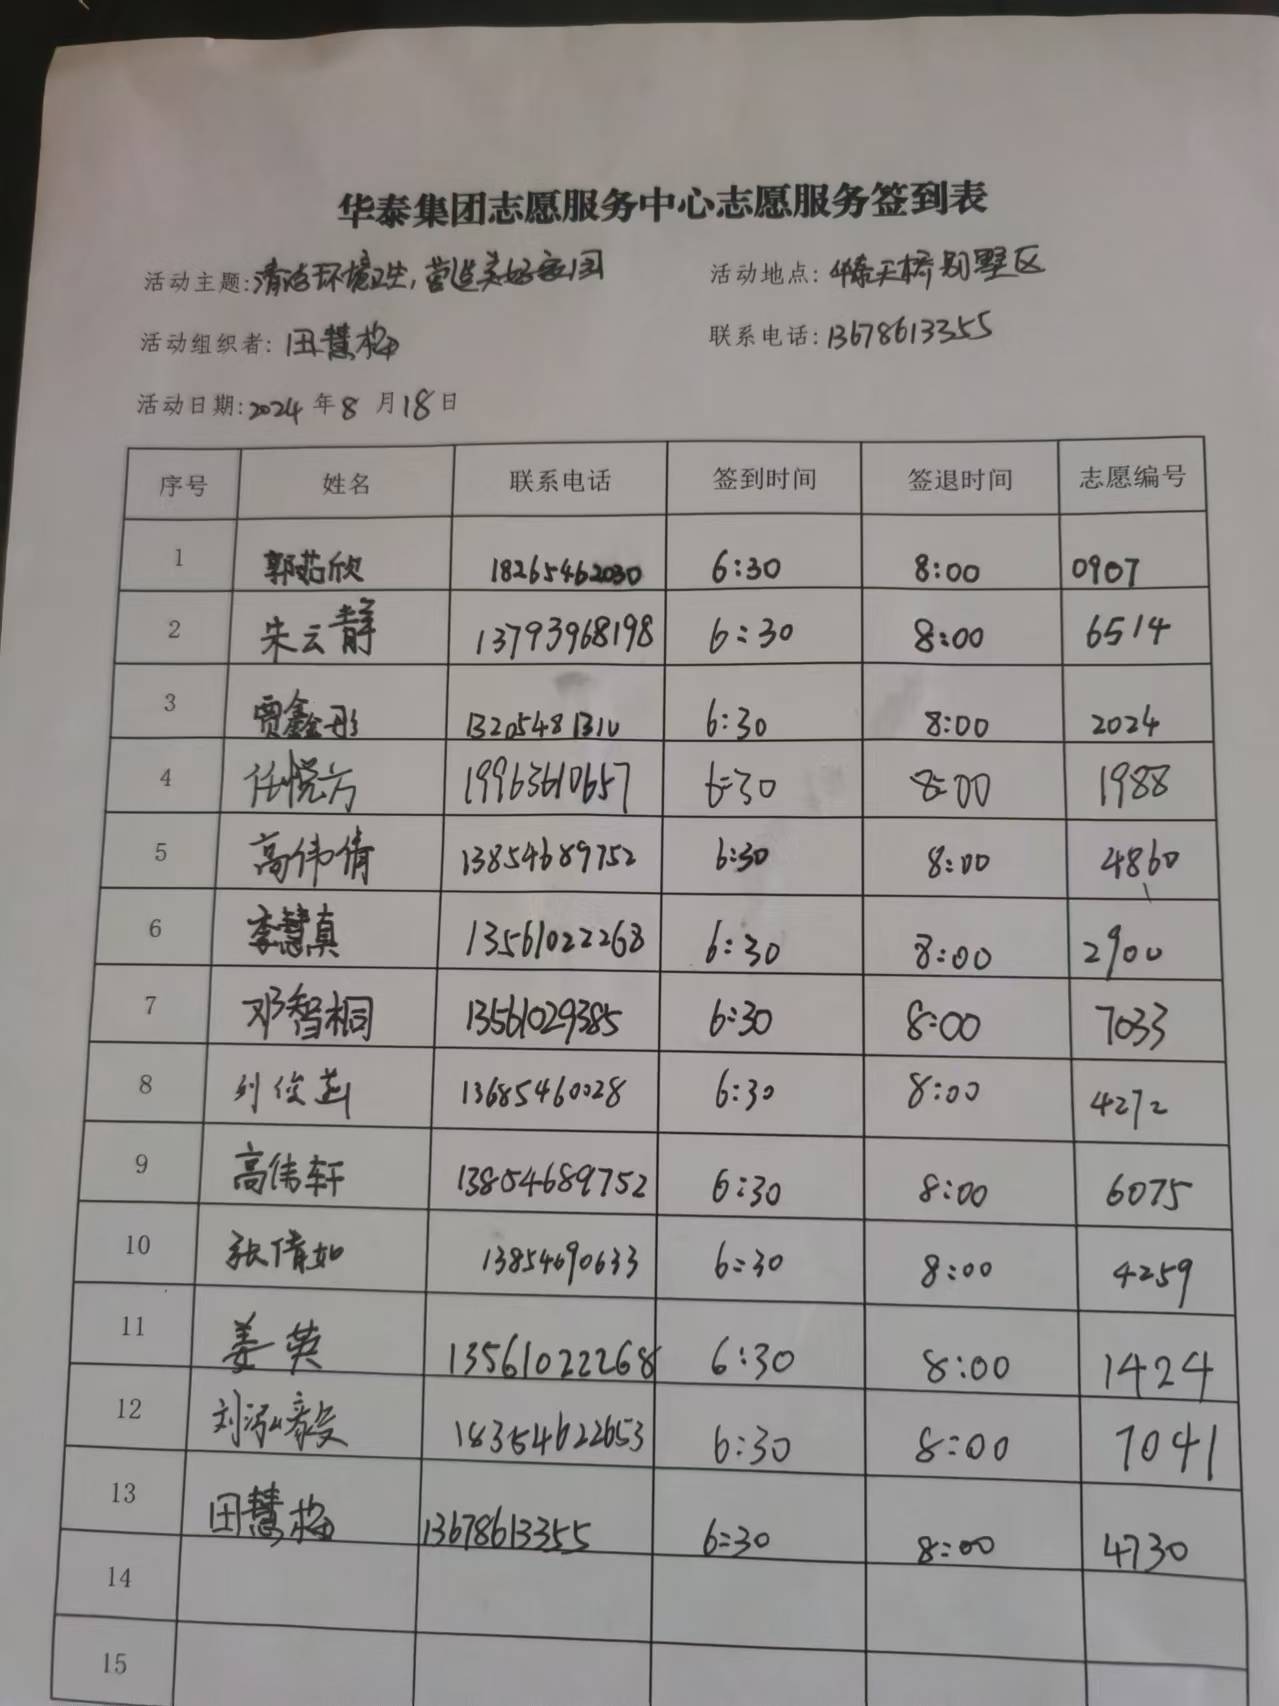 华泰集团志愿服务中心志愿服务签到表
活动主题:清洁环境卫生,营造美好家园 活动地点:华泰天桥别墅区
活动组织者:田慧梅 联系电话:13678613355
活动日期:2024年8月18日
序号 姓名 联系电话 签到时间 签退时间 志愿编号
1 郭茹欣 18265462030 6:30 8:00 0907
2 朱云静 13793968198 6:30 8:00 6514
3 贾鑫彤 13205481310 6:30 8:00 2024
4 任悦方 19963610657 6:30 8:00 1988
5 高伟倩 13854689752 6:30 8:00 4860
6 李慧真 13561022268 6:30 8:00 2900
7 邓智桐 13561029385 6:30 8:00 7033
8 刘俊 13685460028 6:30 8:00 4272
9 高伟轩 13854689752 6:30 8:00 6075
10 张倩如 13854690633 6:30 8:00 4259
11 姜英 13561022268 6:30 8:00 1424
12 刘泓毅 18354622653 6:30 8:00 7041
13 田慧梅 13678613355 6:30 8:00 4730
14
15